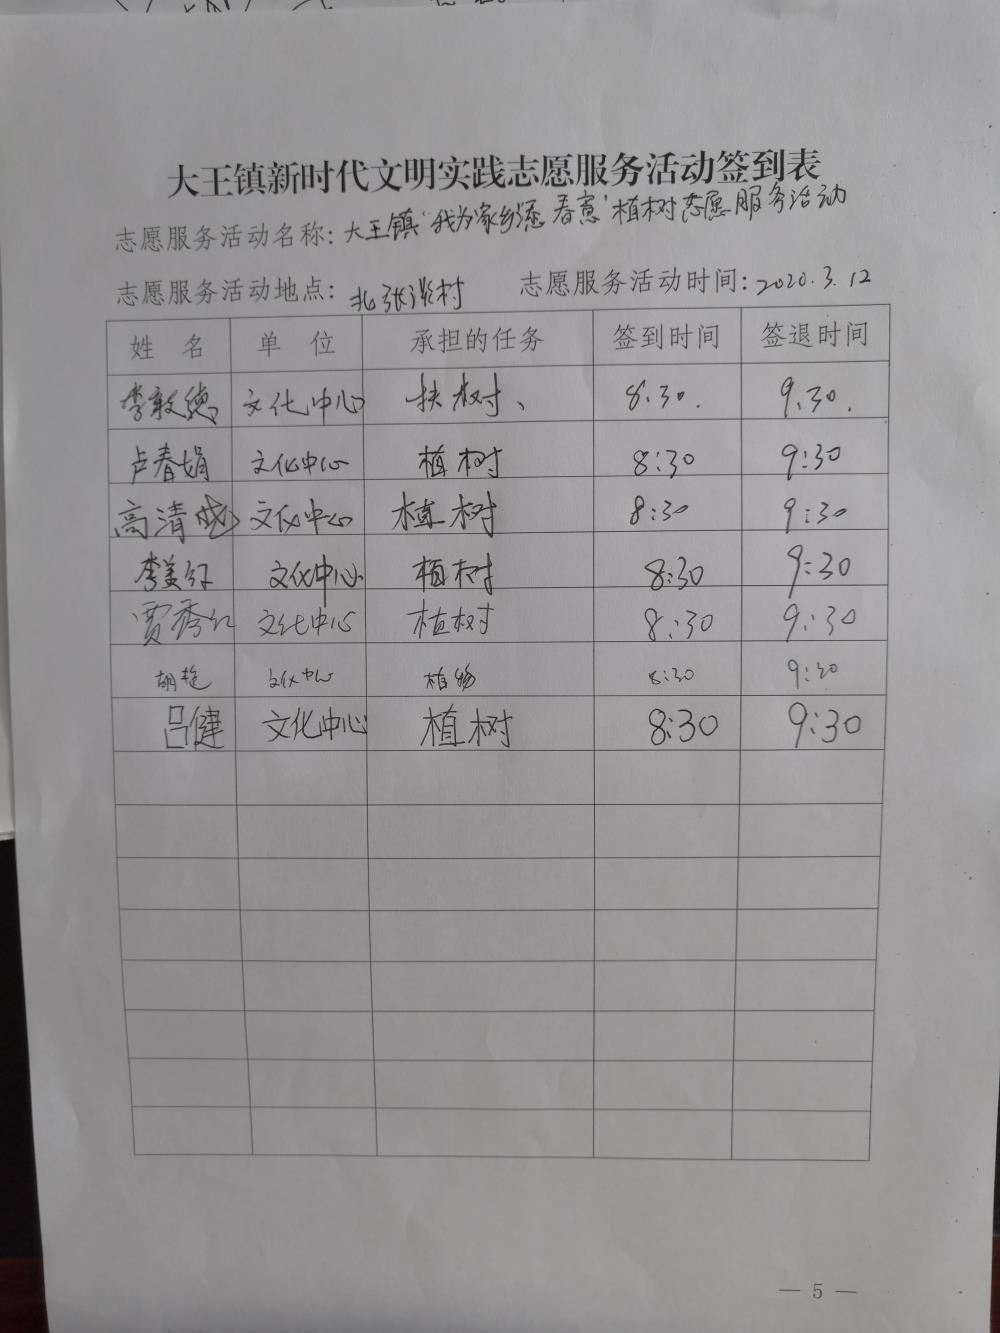 大王镇新时代文明实践志愿服务活动签到表
志愿服务活动名称: 大王镇"我为家乡添春意"植树志愿服务活动
志愿服务活动地点: 北张淡村 志愿服务活动时间: 2020.3.12
姓 名 单 位 承担的任务 签到时间 签退时间
李敦德 文化中心 扶树、 8:30. 9.30.
卢春娟 文化中心 植树 8:30 9:30
高清 文化中心 植树 8:30 9:30
李美红 文化中心 植树 8:30 9:30
贾秀红 文化中心 植树 8:30 9:30
胡艳 文化中心 植树 8:30 9:30
吕健 文化中心 植树 8:30 9:30
— 5 —